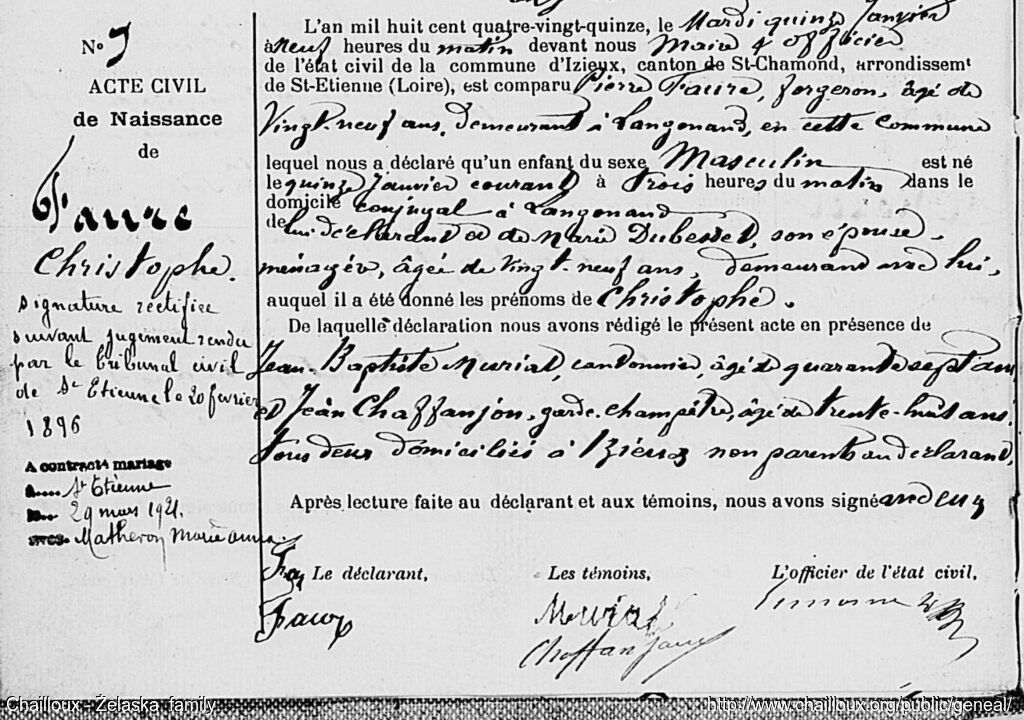 L'an mil huit cent quatre-vingt-quinze, le Mardi quinze Janvier
à neuf heures du matin devant nous Maire & officier
de l'état civil de la commune d'Izieux, canton de St-Chamond, arrondissemt
de St-Etienne (Loire), est comparu Pierre Faure, forgeron, âgé de
Vingt-neuf ans, demeurant à Langonand, en cette commune
lequel nous a déclaré qu'un enfant du sexe Masculin est né
le quinze Janvier courant à trois heures du matin dans le
domicile conjugal à Langonand
de lui déclarant et de Marie Dubesset, son épouse,
ménagère, âgée de vingt-neuf ans, demeurant avec lui,
auquel il a été donné les prénoms de Christophe.
De laquelle déclaration nous avons rédigé le présent acte en présence de
Jean-Baptiste Murial, cantonnier, âgé de quarante sept ans
et Jean Chaffanjon, garde-champêtre, âgé de trente-huit ans
tous deux domiciliés à Izieux non parents au déclarant,
Après lecture faite au déclarant et aux témoins, nous avons signé avec eux
Le déclarant, Les témoins, L'officier de l'état civil,
Faure
Murial
Chaffanjon
No
ACTE CIVIL
de Naissance
de
Faure
Christophe.
signature rectifiée
suivant jugement rendu
par le tribunal civil
de St Etienne le 20 fevrier
1896
A contracté mariage
à St Etienne
le 29 mars 1921.
avec Matheron Marie Anna.
Chailloux - Żelaska family
http://www.chailloux.org/public/geneal/